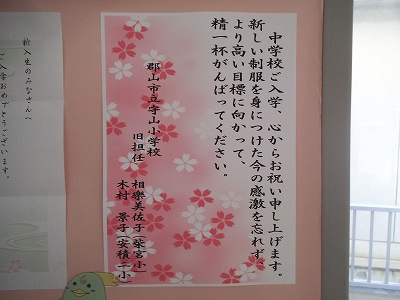 中学校ご入学、心からお祝い申し上げます。
新しい制服を身につけた今の感激を忘れず
より高い目標に向かって、
精一杯がんばってください。
郡山市立守山小学校
旧担任 相樂美佐子(柴宮小)
木村 景子(安積一小)
新入生のみなさんへ
ご入学おめでとうございます。